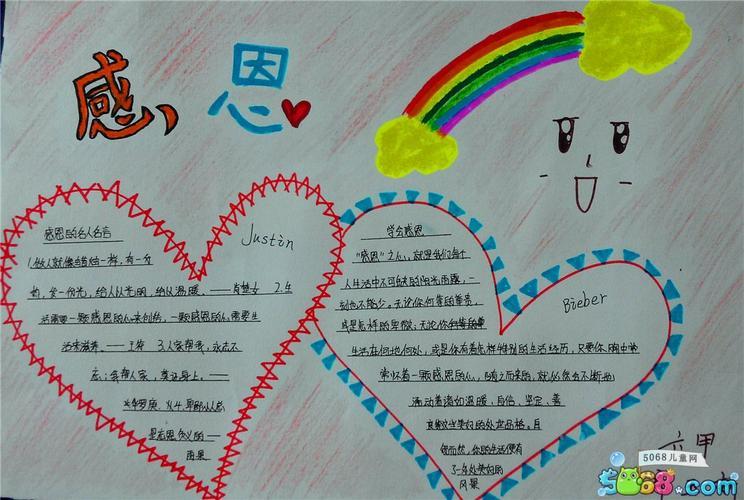 感恩
感恩的名人名言
Justin
1.做人就像蜡烛一样，有一分
热，发一份光，给人以光明，给以温暖。——肖楚女 2.生
活需要一颗感恩的心来创造，一颗感恩的心需要生
活来滋养。——王符 3.人家帮我，永志不
忘；我帮人家，莫记身上。——
华罗庚
是忘恩负义的——
雨果
学会感恩
“感恩”之心，就是我们每个
人生活中不可或缺的阳光雨露，一
刻也不能少。无论你何等的尊贵，
或是怎样的卑微；无论你
生活在何地何处，或是你有着怎样特别的生活经历，只要你胸中常
常怀着一颗感恩的心，随之而来的，就必然会不断地
涌动着诸如温暖、自信、坚定、善
良
Bieber
自然而然，你的生活便有
了一
风景
六甲
5068儿童网
5068.com